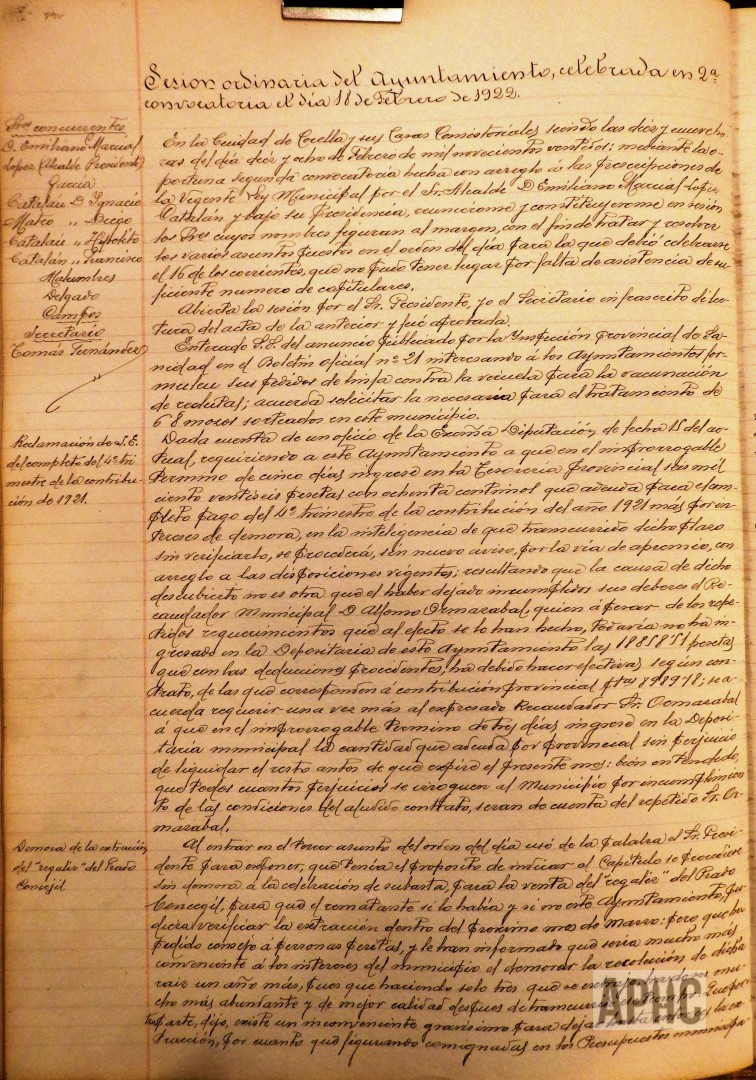 Sesion ordinaria del Ayuntamiento, celebrada en 2ª
convocatoria el día 18 de Febrero de 1922.
Sres concurrentes
D. Emiliano Marcial
Lopez (Alcalde Presidente)
Garcia
Catalan D. Ignacio
Mateo " Diego
Catalan " Hipólito
Catalán " Francisco
Malumbres
Delgado
Campos
Secretario
Tomás Fernández
En la Ciudad de Corella y sus Casas Consistoriales siendo las diez y nueve ho-
ras del día diez y ocho de Febrero de mil novecientos ventidos: mediante la o-
portuna segunda convocatoria hecha con arreglo á las prescripciones de
la vigente Ley Municipal por el Sr. Alcalde D. Emiliano Marcial Lopez
Catalán y bajo su Presidencia, reunieronse y constituyeronse en sesión
los Sres cuyos nombres figuran al margen, con el fin de tratar y resolver
los varios asuntos puestos en el orden del día para la que debió celebrarse
el 16 de los corrientes, que no pudo tener lugar por falta de asistencia de su-
ficiente numero de capitulares.
Abierta la sesión por el Sr. Presidente, yo el Secretario infrascrito di lec-
tura del acta de la anterior y fué aprobada.
Enterado S.S. del anuncio publicado por la Inspección provincial de Sa-
nidad en el Boletin oficial nº 21 interesando á los Ayuntamientos for-
mulen sus pedidos de linfa contra la viruela para la vacunación
de reclutas; acuerda solicitar la necesaria para el tratamiento de
68 mozos sorteados en este municipio.
Reclamación de S.E.
del completo del 4º tri-
mestre de la contribu-
ción de 1921.
Dada cuenta de un oficio de la Excma Diputación, de fecha 15 del ac-
tual, requiriendo a este Ayuntamiento a que en el improrrogable
termino de cinco días ingrese en la Tesoreria provincial seis mil
ciento ventiseis pesetas con ochenta centimos que adeuda para el com-
pleto pago del 4º trimestre de la contribución del año 1921 más por in-
tereses de demora, en la inteligencia de que transcurrido dicho plazo
sin verificarlo, se procederá, sin nuevo aviso, por la vía de apremio, con
arreglo a las disposiciones vigentes; resultando que la causa de dicho
descubierto no es otra que el haber dejado incumplidos sus deberes el Re-
caudador Municipal D. Alfonso Ormazabal, quien á pesar de los repe-
tidos requerimientos que al efecto se le han hecho, todavia no ha in-
gresado en la Depositaria de este Ayuntamiento las 18858'51 pesetas
que con las deducciones procedentes, ha debido hacer efectivas según con-
trato, de las que corresponden á contribución provincial ptas 8989'18; se a-
cuerda requerir una vez más al expresado Recaudador Sr. Ormazabal
á que en el improrrogable termino de tres días, ingrese en la Deposi-
taria municipal la cantidad que adeuda por provincial sin perjuicio
de liquidar el resto antes de que expire el presente mes: bien entendido,
que todos cuantos perjuicios se irroguen al Municipio por incumplimien-
to de las condiciones del aludido contrato, seran de cuenta del repetido Sr. Or-
mazabal.
Demora de la extracción
del "regaliz" del Prado
Concejil
Al entrar en el tercer asunto del orden del día usó de la palabra el Sr. Presi-
dente para exponer, que tenía el proposito de indicar al Capítulo se procediese
sin demora á la celebración de subasta, para la venta del "regaliz" del Prado
Concegil, para que el rematante si lo había y si no este Ayuntamiento, pu-
diera verificar la extracción dentro del proximo mes de Marzo: pero que ha
pedido consejo á personas peritas, y le han informado que seria mucho más
conveniente á los intereses del municipio el demorar la recolección de dicha
raiz un año más, pues que haciendo solo tres que se
cho más abundante y de mejor calidad despues de transcurrido
tra parte, dijo, existe un inconveniente gravisimo para dejar
tracción, por cuanto que figurando consignadas en los Presupuestos municipa-
APHC